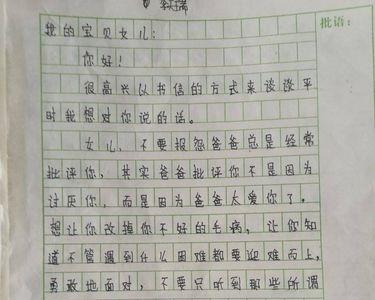 我的宝贝女儿:
你好!
很高兴以书信的方式来谈谈平
时我想对你说的话。
女儿,不要报怨爸爸总是经常
批评你,其实爸爸批评你不是因为
讨厌你,而是因为爸爸太爱你了。
想让你改掉你不好的毛病,让你知
道不管遇到什么困难都要迎难而上,
勇敢地面对,不要只听到那些所谓
批语: